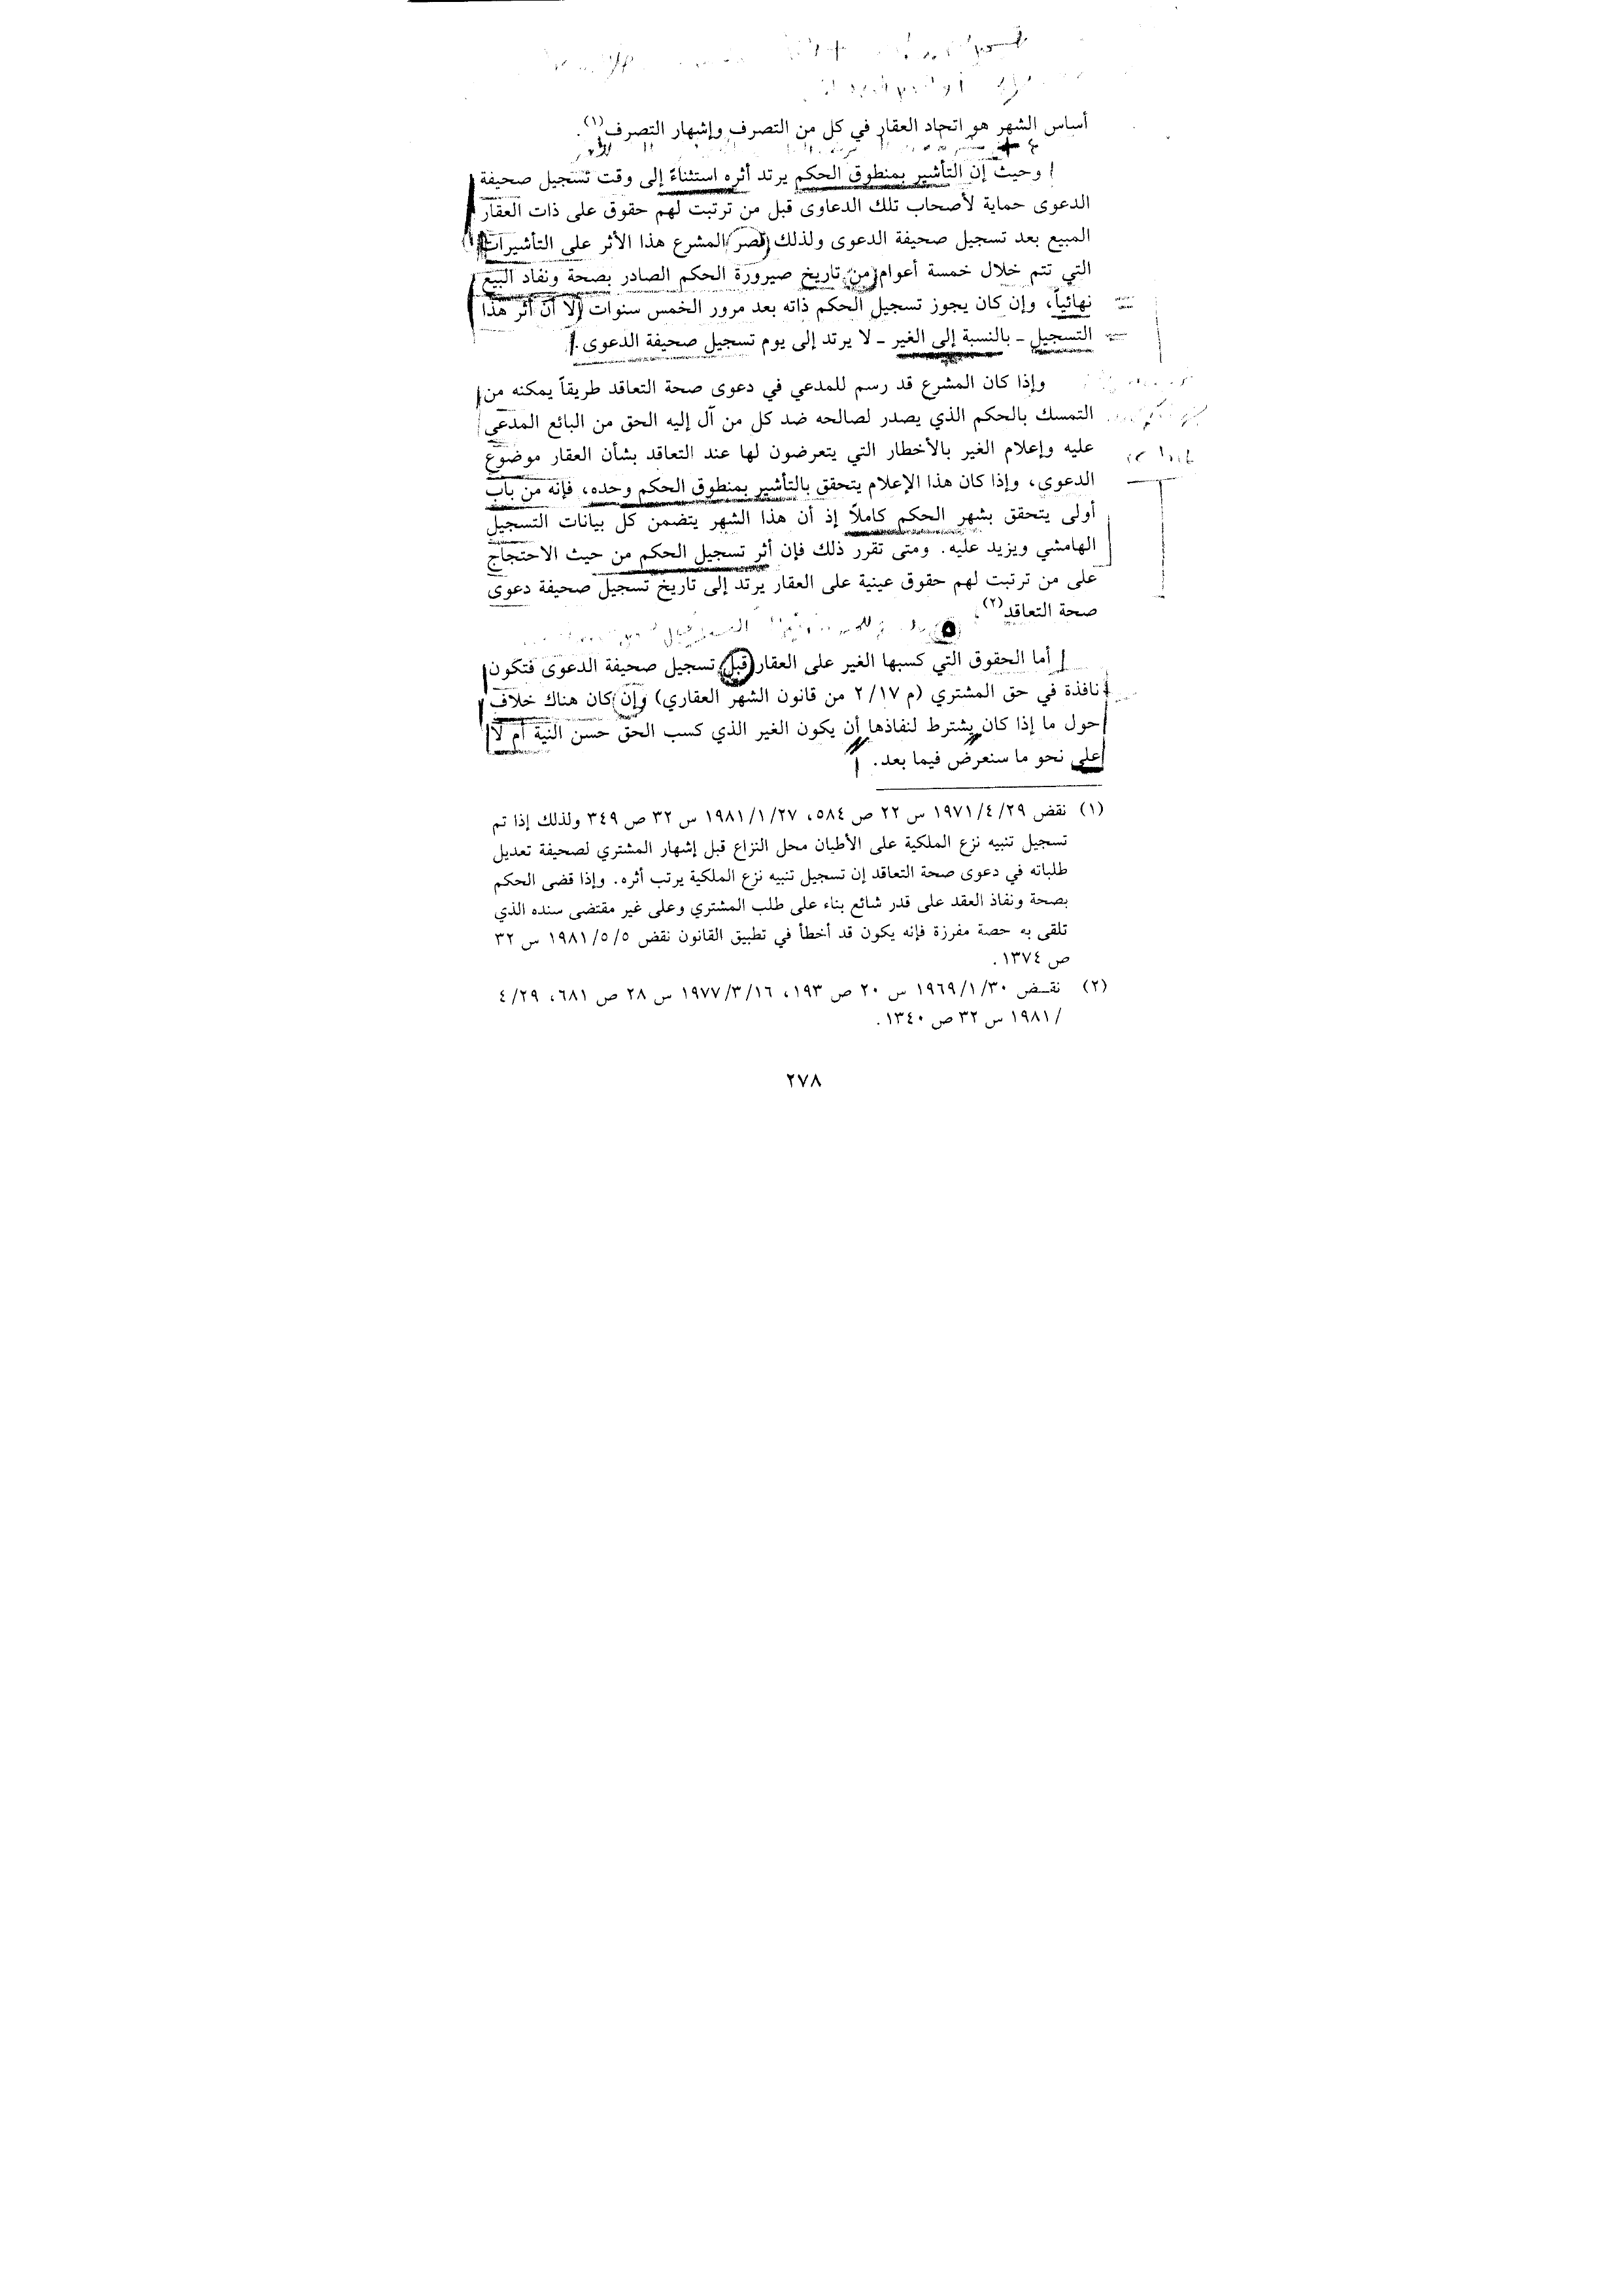 أساس الشهر هو اتحاد العقار في كل من التصرف وإشهار التصرف(١).
وحيث إن التأشير بمنطوق الحكم يرتد أثره استثناءً إلى وقت تسجيل صحيفة
الدعوى حماية لأصحاب تلك الدعاوى قبل من ترتبت لهم حقوق على ذات العقار
المبيع بعد تسجيل صحيفة الدعوى ولذلك قصر المشرع هذا الأثر على التأشيرات
التي تتم خلال خمسة أعوام من تاريخ صيرورة الحكم الصادر بصحة ونفاد البيع
نهائياً، وإن كان يجوز تسجيل الحكم ذاته بعد مرور الخمس سنوات إلا أن أثر هذا
التسجيل ـ بالنسبة إلى الغير ـ لا يرتد إلى يوم تسجيل صحيفة الدعوى.
وإذا كان المشرع قد رسم للمدعي في دعوى صحة التعاقد طريقاً يمكنه من
التمسك بالحكم الذي يصدر لصالحه ضد كل من آل إليه الحق من البائع المدعى
عليه وإعلام الغير بالأخطار التي يتعرضون لها عند التعاقد بشأن العقار موضوع
الدعوى، وإذا كان هذا الإعلام يتحقق بالتأشير بمنطوق الحكم وحده، فإنه من باب
أولى يتحقق بشهر الحكم كاملاً إذ أن هذا الشهر يتضمن كل بيانات التسجيل
الهامشي ويزيد عليه. ومتى تقرر ذلك فإن أثر تسجيل الحكم من حيث الاحتجاج
على من ترتبت لهم حقوق عينية على العقار يرتد إلى تاريخ تسجيل صحيفة دعوى
صحة التعاقد(٢).
أما الحقوق التي كسبها الغير على العقار قبل تسجيل صحيفة الدعوى فتكون
نافذة في حق المشتري (م ٢/١٧ من قانون الشهر العقاري) وإن كان هناك خلاف
حول ما إذا كان يشترط لنفاذها أن يكون الغير الذي كسب الحق حسن النية أم لا
على نحو ما سنعرض فيما بعد.
(١) نقض ١٩٧١/٤/٢٩ س ٢٢ ص ٥٨٤، ١٩٨١/١/٢٧ س ٣٢ ص ٣٤٩ ولذلك إذا تم
تسجيل تنبيه نزع الملكية على الأطيان محل النزاع قبل إشهار المشتري لصحيفة تعديل
طلباته في دعوى صحة التعاقد إن تسجيل تنبيه نزع الملكية يرتب أثره. وإذا قضى الحكم
بصحة ونفاذ العقد على قدر شائع بناء على طلب المشتري وعلى غير مقتضى سنده الذي
تلقى به حصة مفرزة فإنه يكون قد أخطأ في تطبيق القانون نقض ١٩٨١/٥/٥ س ٣٢
ص ١٣٧٤.
(٢) نقـض ١٩٦٩/١/٣٠ س ٢٠ ص ١٩٣، ١٩٧٧/٣/١٦ س ٢٨ ص ٦٨١، ٤/٢٩
/١٩٨١ س ٣٢ ص ١٣٤٠.
٢٧٨